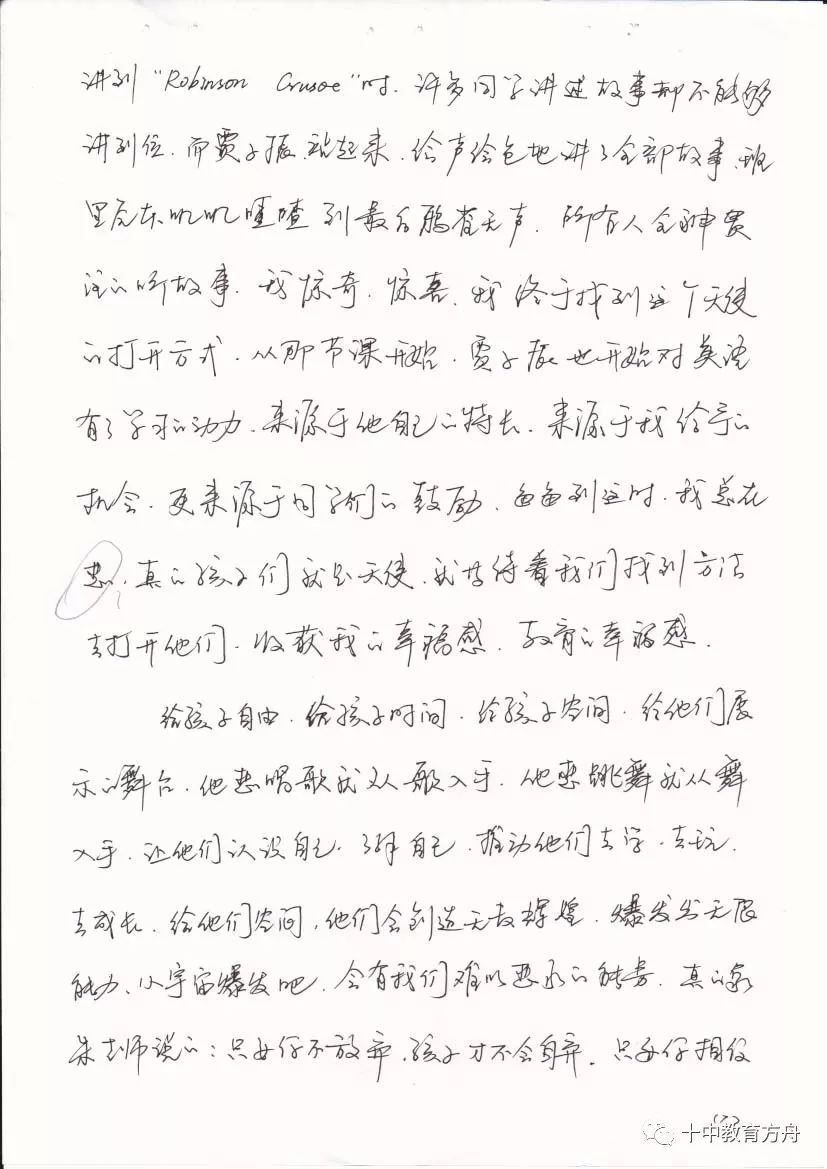 讲到 "Robinson Crusoe" 时, 许多同学讲述故事都不能够
讲到位, 而贾子振站起来, 绘声绘色地讲了全部故事, 班
里原本叽叽喳喳到最后鸦雀无声, 所有人全神贯
注的听故事. 我惊奇, 惊喜, 我终于找到这个天使
的打开方式. 从那节课开始, 贾子振也开始对英语
有了学习的动力, 来源于他自己的特长, 来源于我给予的
机会, 更来源于同学们的鼓励. 每每到这时, 我总在
想, 真的孩子们就是天使, 就等待着我们找到方法
去打开他们, 收获我的幸福感, 教育的幸福感.
给孩子自由, 给孩子时间, 给孩子空间, 给他们展
示的舞台, 他想唱歌我从歌入手, 他想跳舞我从舞
入手, 让他们认识自己, 了解自己, 推动他们去学, 去玩,
去成长, 给他们空间, 他们会创造无数辉煌, 爆发出无限
能力, 小宇宙爆发吧, 会有我们难以想象的能量. 真的象
朱老师说的: 只要你不放弃, 孩子才不会自弃, 只要你相信
(2)
十中教育方舟